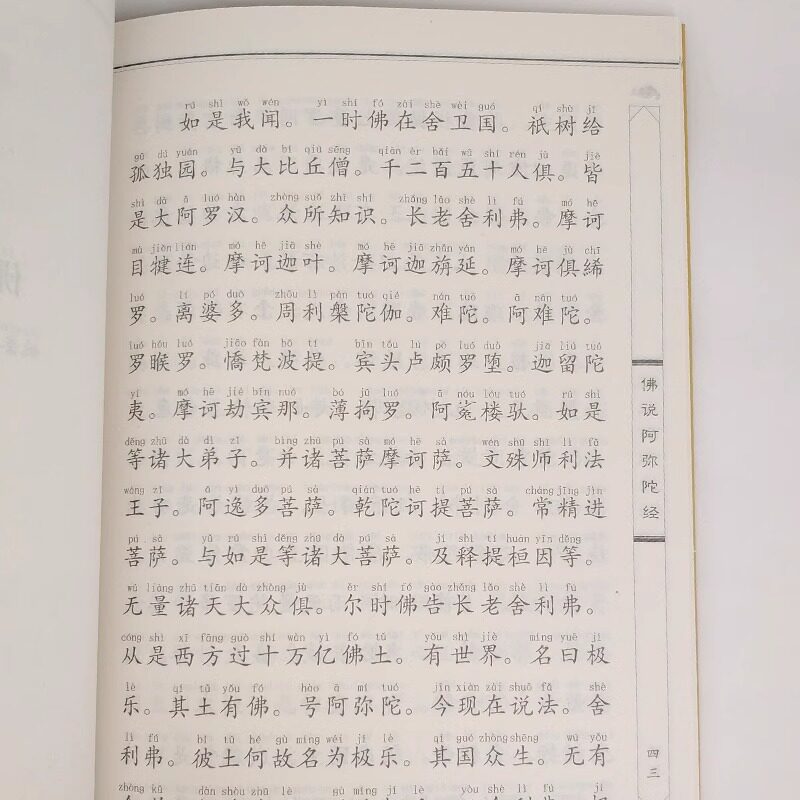 rú shì wǒ wén yì shí fó zài shè wèi guó qí shù jǐ
如是我闻。一时佛在舍卫国。祇树给
gū dú yuán yǔ dà bǐ qiū sēng qiān èr bǎi wǔ shí rén jù jiē
孤独园。与大比丘僧。千二百五十人俱。皆
shì dà ā luó hàn zhòng suǒ zhī shí zhǎng lǎo shè lì fú mó hē
是大阿罗汉。众所知识。长老舍利弗。摩诃
mù jiān lián mó hē jiā shè mó hē jiā zhān yán mó hē jù chī
目犍连。摩诃迦叶。摩诃迦旃延。摩诃俱絺
luó lí pó duō zhōu lì pán tuó qié nán tuó ā nán tuó
罗。离婆多。周利槃陀伽。难陀。阿难陀。
luó hóu luó jiāo fàn bō tí bīn tóu lú pō luó duò jiā liú tuó
罗睺罗。憍梵波提。宾头卢颇罗堕。迦留陀
yí mó hē jié bīn nuó bó jū luó ā nóu lóu tuó rú shì
夷。摩诃劫宾那。薄拘罗。阿㝹楼驮。如是
děng zhū dà dì zǐ bìng zhū pú sà mó hē sà wén shū shī lì fǎ
等诸大弟子。并诸菩萨摩诃萨。文殊师利法
wáng zǐ ā yì duō pú sà qián tuó hē tí pú sà cháng jīng jìn
王子。阿逸多菩萨。乾陀诃提菩萨。常精进
pú sà yǔ rú shì děng zhū dà pú sà jí shì tí huán yīn děng
菩萨。与如是等诸大菩萨。及释提桓因等。
wú liàng zhū tiān dà zhòng jù ěr shí fó gào zhǎng lǎo shè lì fú
无量诸天大众俱。尔时佛告长老舍利弗。
cóng shì xī fāng guò shí wàn yì fó tǔ yǒu shì jiè míng yuē jí
从是西方过十万亿佛土。有世界。名曰极
lè qí tǔ yǒu fó hào ā mí tuó jīn xiàn zài shuō fǎ shè
乐。其土有佛。号阿弥陀。今现在说法。舍
lì fú bǐ tǔ hé gù míng wéi jí lè qí guó zhòng shēng wú yǒu
利弗。彼土何故名为极乐。其国众生。无有
zhòng kǔ dàn shòu zhū lè gù míng jí lè
佛说阿弥陀经
四三